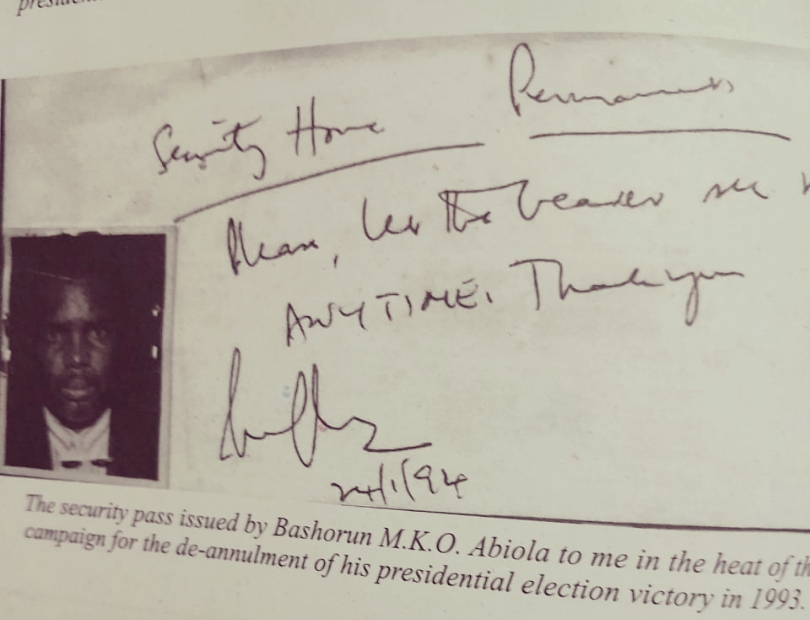 Security Home Permanent
Please, let the bearer see
ANYTIME. Thank you
24/1/94
The security pass issued by Bashorun M.K.O. Abiola to me in the heat of th
campaign for the de-annulment of his presidential election victory in 1993.